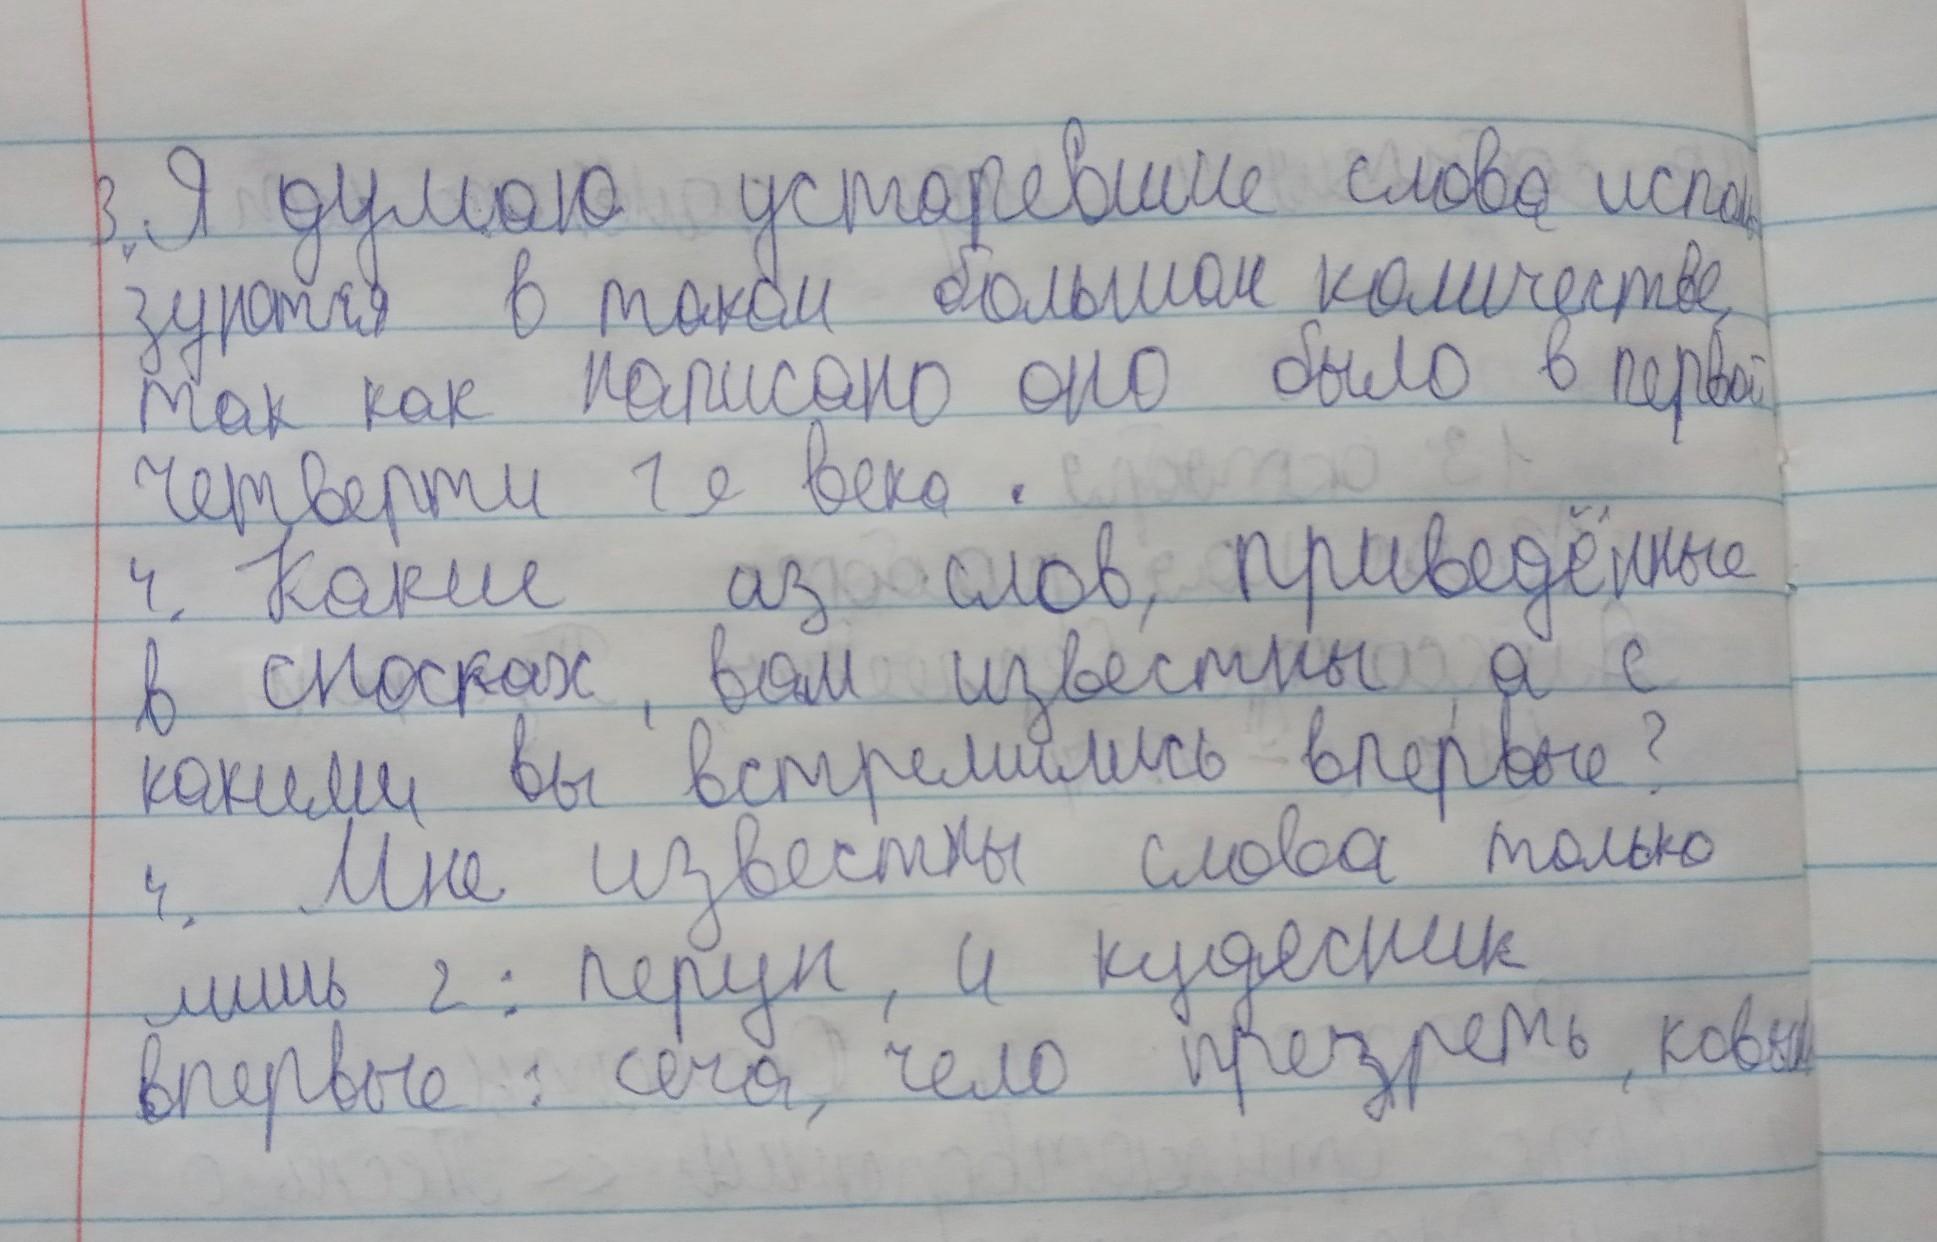 3. Я думаю устаревшие слова исполь
зуются в таком большом количестве,
так как написано оно было в первой
четверти 1 е века.
4. Какие из слов, приведённые
в сносках, вам известны, а с
какими вы встремились впервые?
4. Мне известны слова только
лишь 2: перун, и кудесник
впервые: сеча, чело презреть, ковыль